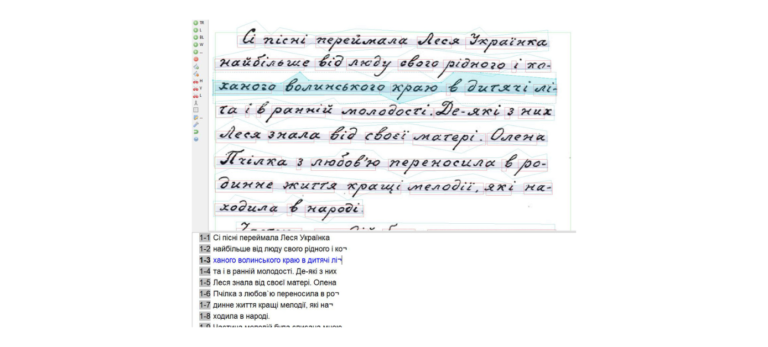 Сі пісні переймала Леся Українка
найбільше від люду свого рідного і ко-
ханого волинського краю в дитячі лі-
та і в ранній молодості. Де-які з них
Леся знала від своєї матері. Олена
Пчілка з любов'ю переносила в ро-
динне життя кращі мелодії, які на-
ходила в народі.
1-1 Сі пісні переймала Леся Українка
1-2 найбільше від люду свого рідного і ко¬
1-3 ханого волинського краю в дитячі лі¬
1-4 та і в ранній молодості. Де-які з них
1-5 Леся знала від своєї матері. Олена
1-6 Пчілка з любов`ю переносила в ро¬
1-7 динне життя кращі мелодії, які на¬
1-8 ходила в народі.